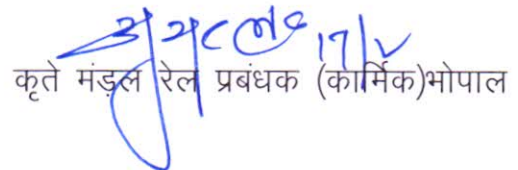 17/2
कृते मंड़ल रेल प्रबंधक (कार्मिक)भोपाल